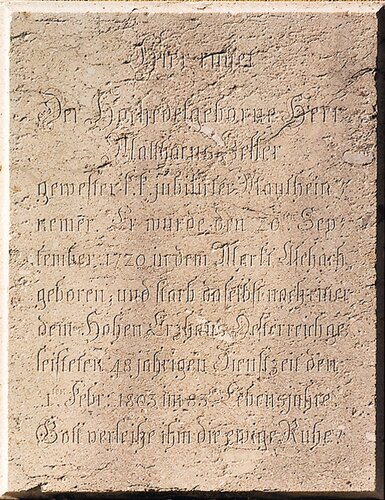 Hier ruhet
Der Hochedelgeborne Herr
Matthaeus Zeller
gewester k. k. jubilirter Mauthein⸗
nemer. Er wurde den 20ten Sep⸗
tember 1720 in dem Merkt Aschach
geboren, und starb daselbst nach einer
dem Hohen Erzhaus Oesterreich ge⸗
leisteten 48 jährigen Dienstzeit den
1ten Febr: 1803 im 83ten Lebensjahre.
Gott verleihe ihm die ewige Ruhe!